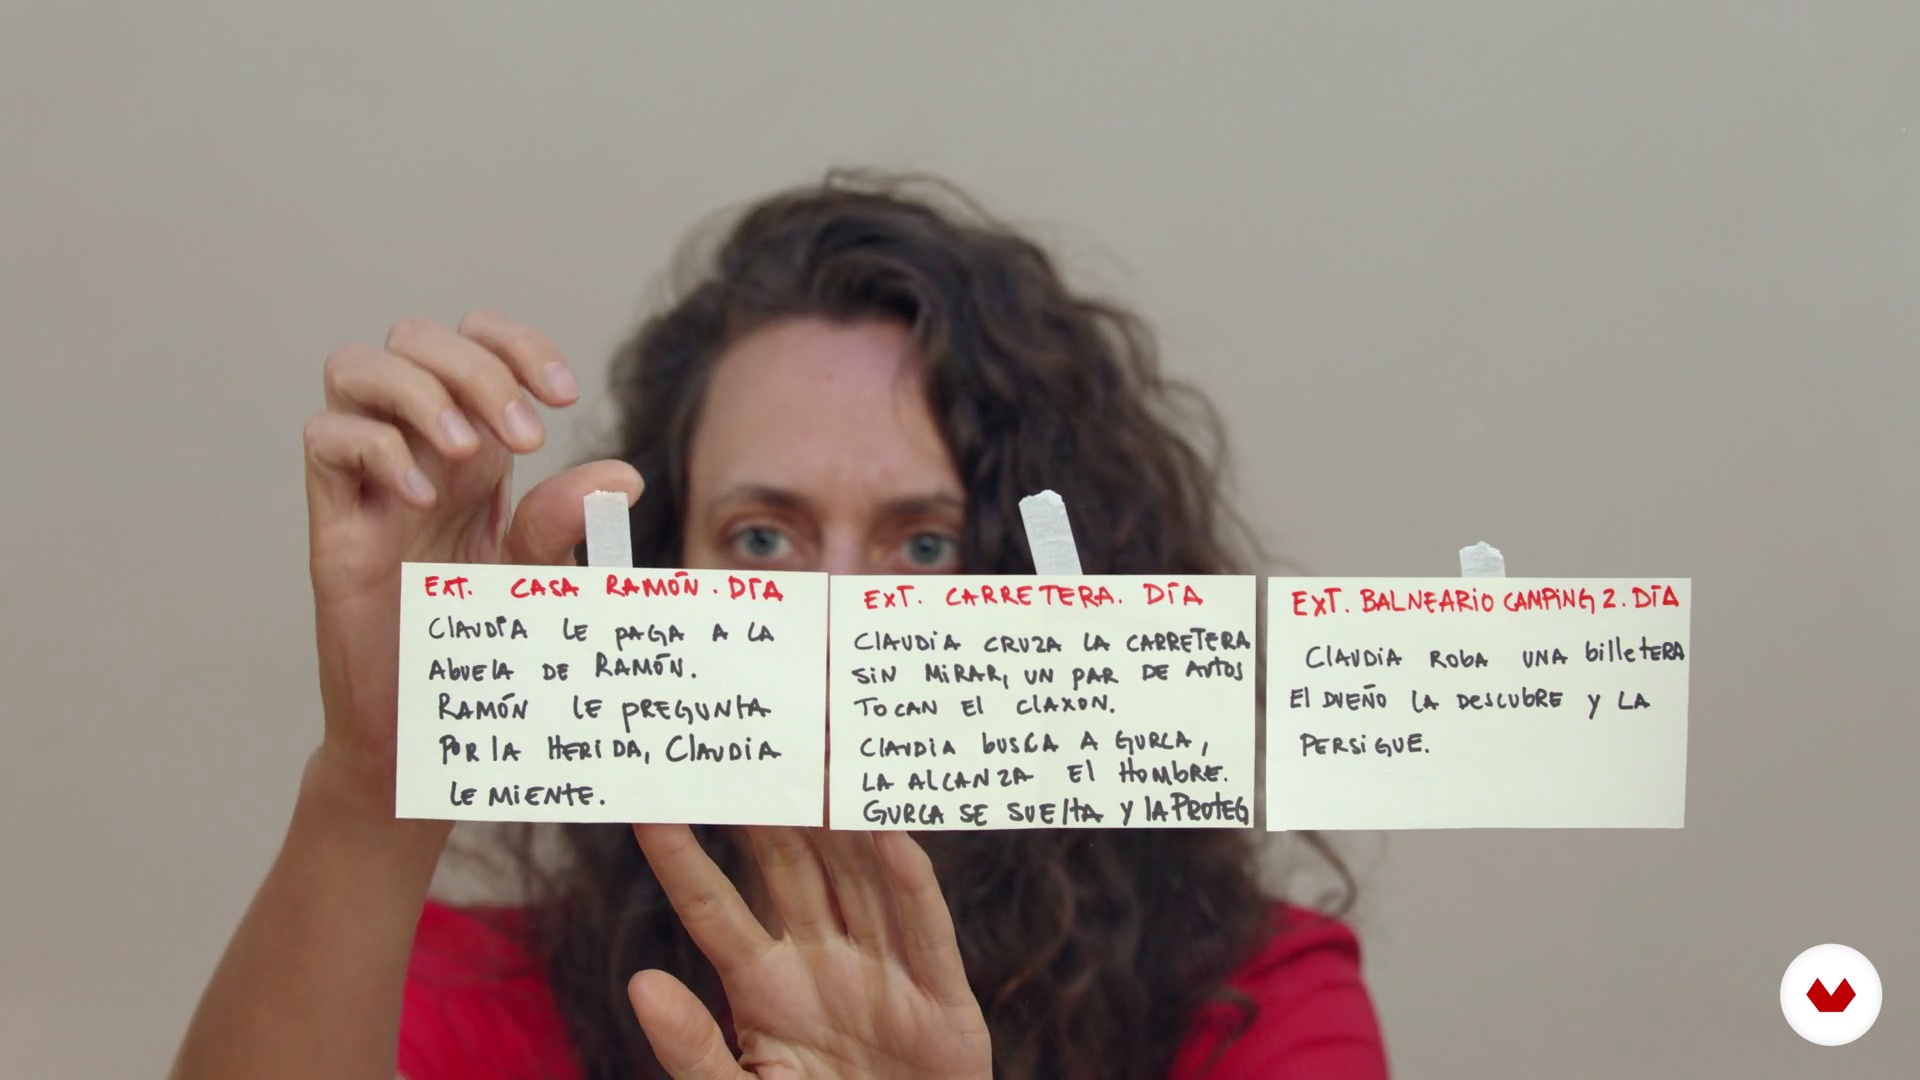 EXT. CASA RAMÓN. DÍA
CLAUDIA LE PAGA A LA
ABUELA DE RAMÓN.
RAMÓN LE PREGUNTA
POR LA HERIDA, CLAUDIA
LE MIENTE.
EXT. CARRETERA. DÍA
CLAUDIA CRUZA LA CARRETERA
SIN MIRAR, UN PAR DE AUTOS
TOCAN EL CLAXON.
CLAUDIA BUSCA A GURCA,
LA ALCANZA EL HOMBRE.
GURCA SE SUELTA Y LA PROTEG
EXT. BALNEARIO CAMPING 2. DÍA
CLAUDIA ROBA UNA billETERA
El DUEÑO LA DESCUBRE Y LA
PERSIGUE.